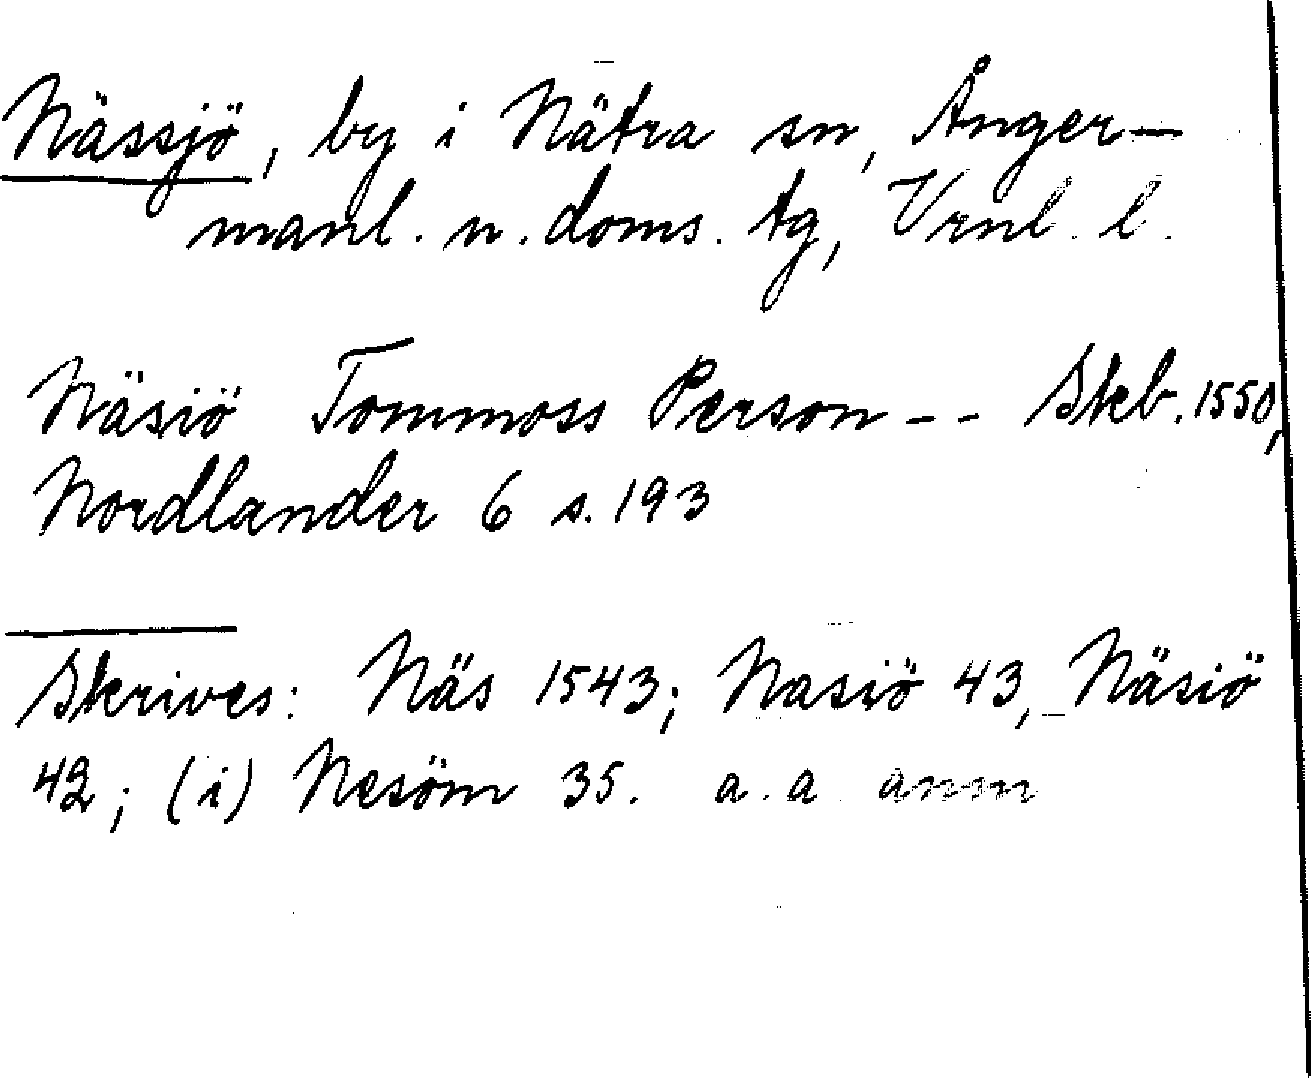 Nässjö, by i Nätra sn, Ånger-
manl. n. doms. tg, Vrnl. l.
Näsiö Tommoss Person -- Skb. 1550,
Nordlander 6 s. 193
Skrives: Näs 1543; Nasiö 43, Näsiö
42; (i) Nesöm 35. a. a. anm